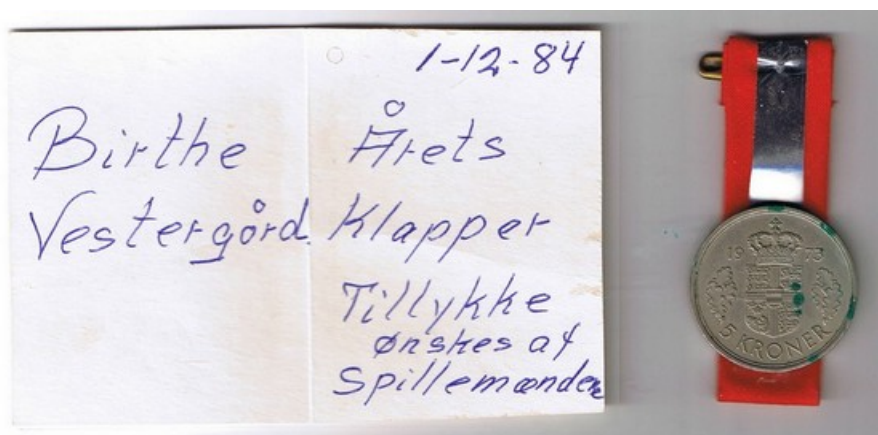 Birthe
Vestergård.
1-12-84
Årets
Klapper
Tillykke
ønskes af
Spillemændene
1973
5 KRONER